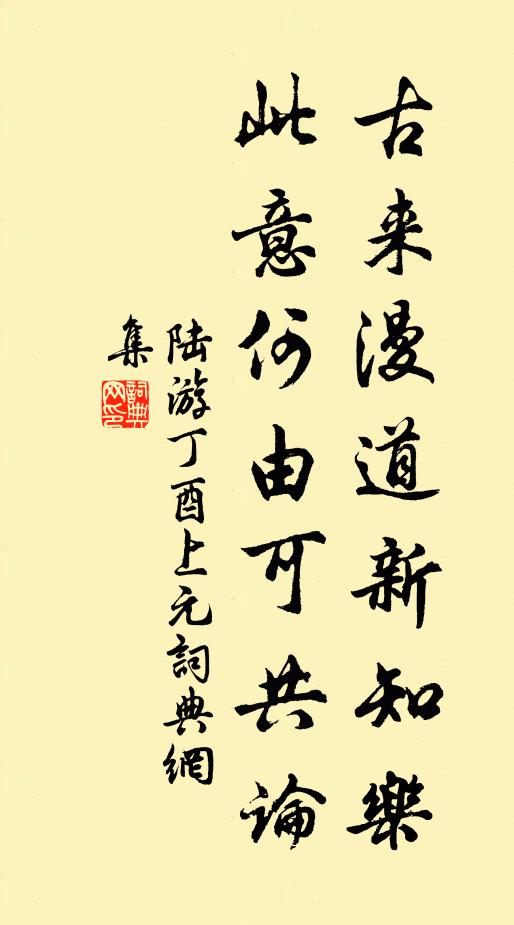 古来漫道新知樂
此意何由可共論
陆游丁酉上元詞典網
集
詞典
网印